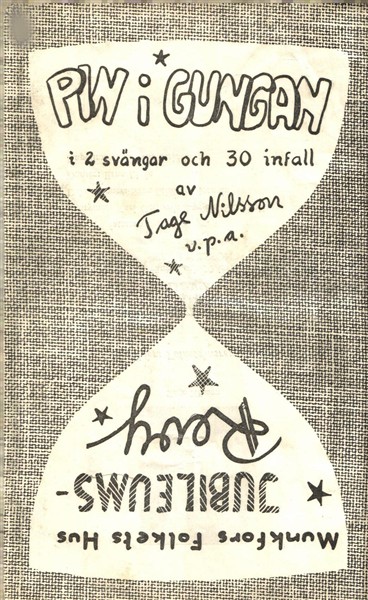 PIW i GUNGAN
i 2 svängar och 30 infall
av
Tage Nilsson
v.p.a.
Munkfors Folkets Hus
JUBILEUMS-
Revy